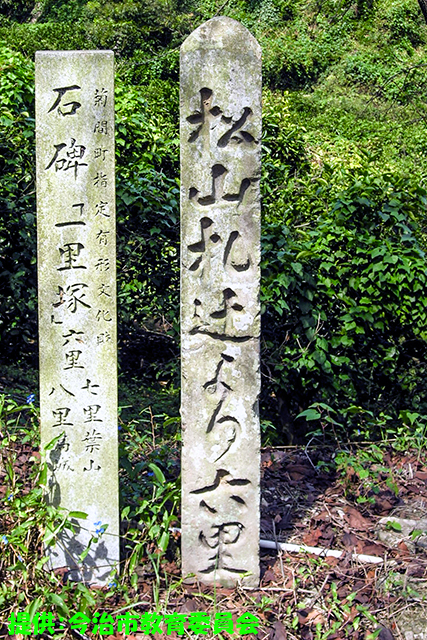 松山札辻より六里
菊間町指定有形文化財
石碑「一里塚」六里
七里葉山
八里
提供:今治市教育委員会